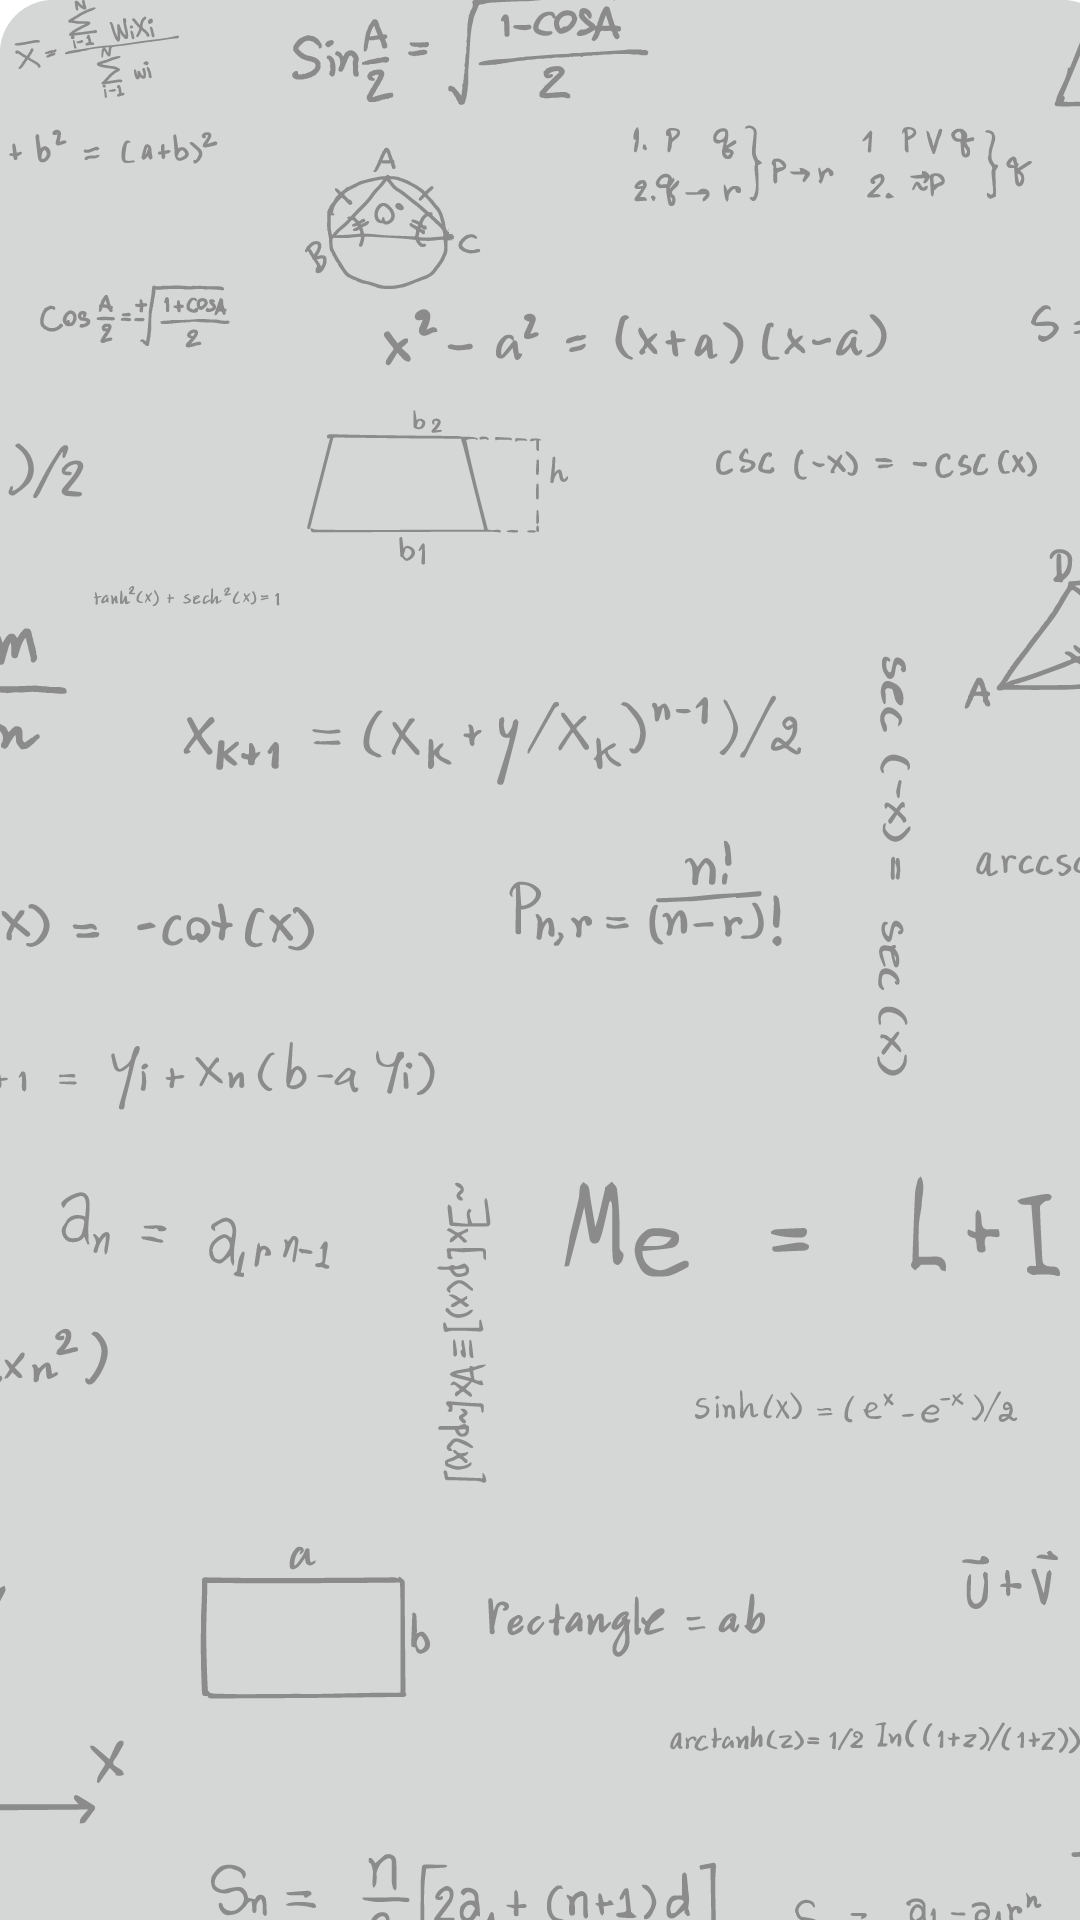 X̄ = N Σ i-1 WiXi / N Σ i-1 wi
Sin A/2 = √ 1-COSA / 2
+ b² = (a+b)²
1. P q } P→r
2. q → r
1 P V q } q
2. ~P
A
O°
B C
Cos A/2 = ±√ 1+COSA / 2
x² - a² = (x+a) (x-a)
S =
b2
)/2
h
CSC (-X) = -CSC (X)
b1
tanh²(X) + sech²(X) = 1
D
A
m
n
X K+1 = (X K + y/X K) n-1 )/2
sec (-x) = sec (x)
P n,r = n! / (n-r)!
arccsc
X) = -cot(X)
+1 = Yi + Xn (b-a Yi)
an = a1 r n-1
~∃x[p(x)] ≡ ∀x[~p(x)]
Me = L+I
xn²)
sinh(X) = (e^x - e^-x)/2
a
b
rectangle = ab
U⃗ + V⃗
arctanh(z) = 1/2 In((1+z)/(1+Z))
X
Sn = n [2a1 + (n+1) d]
= a1 - a1rⁿ